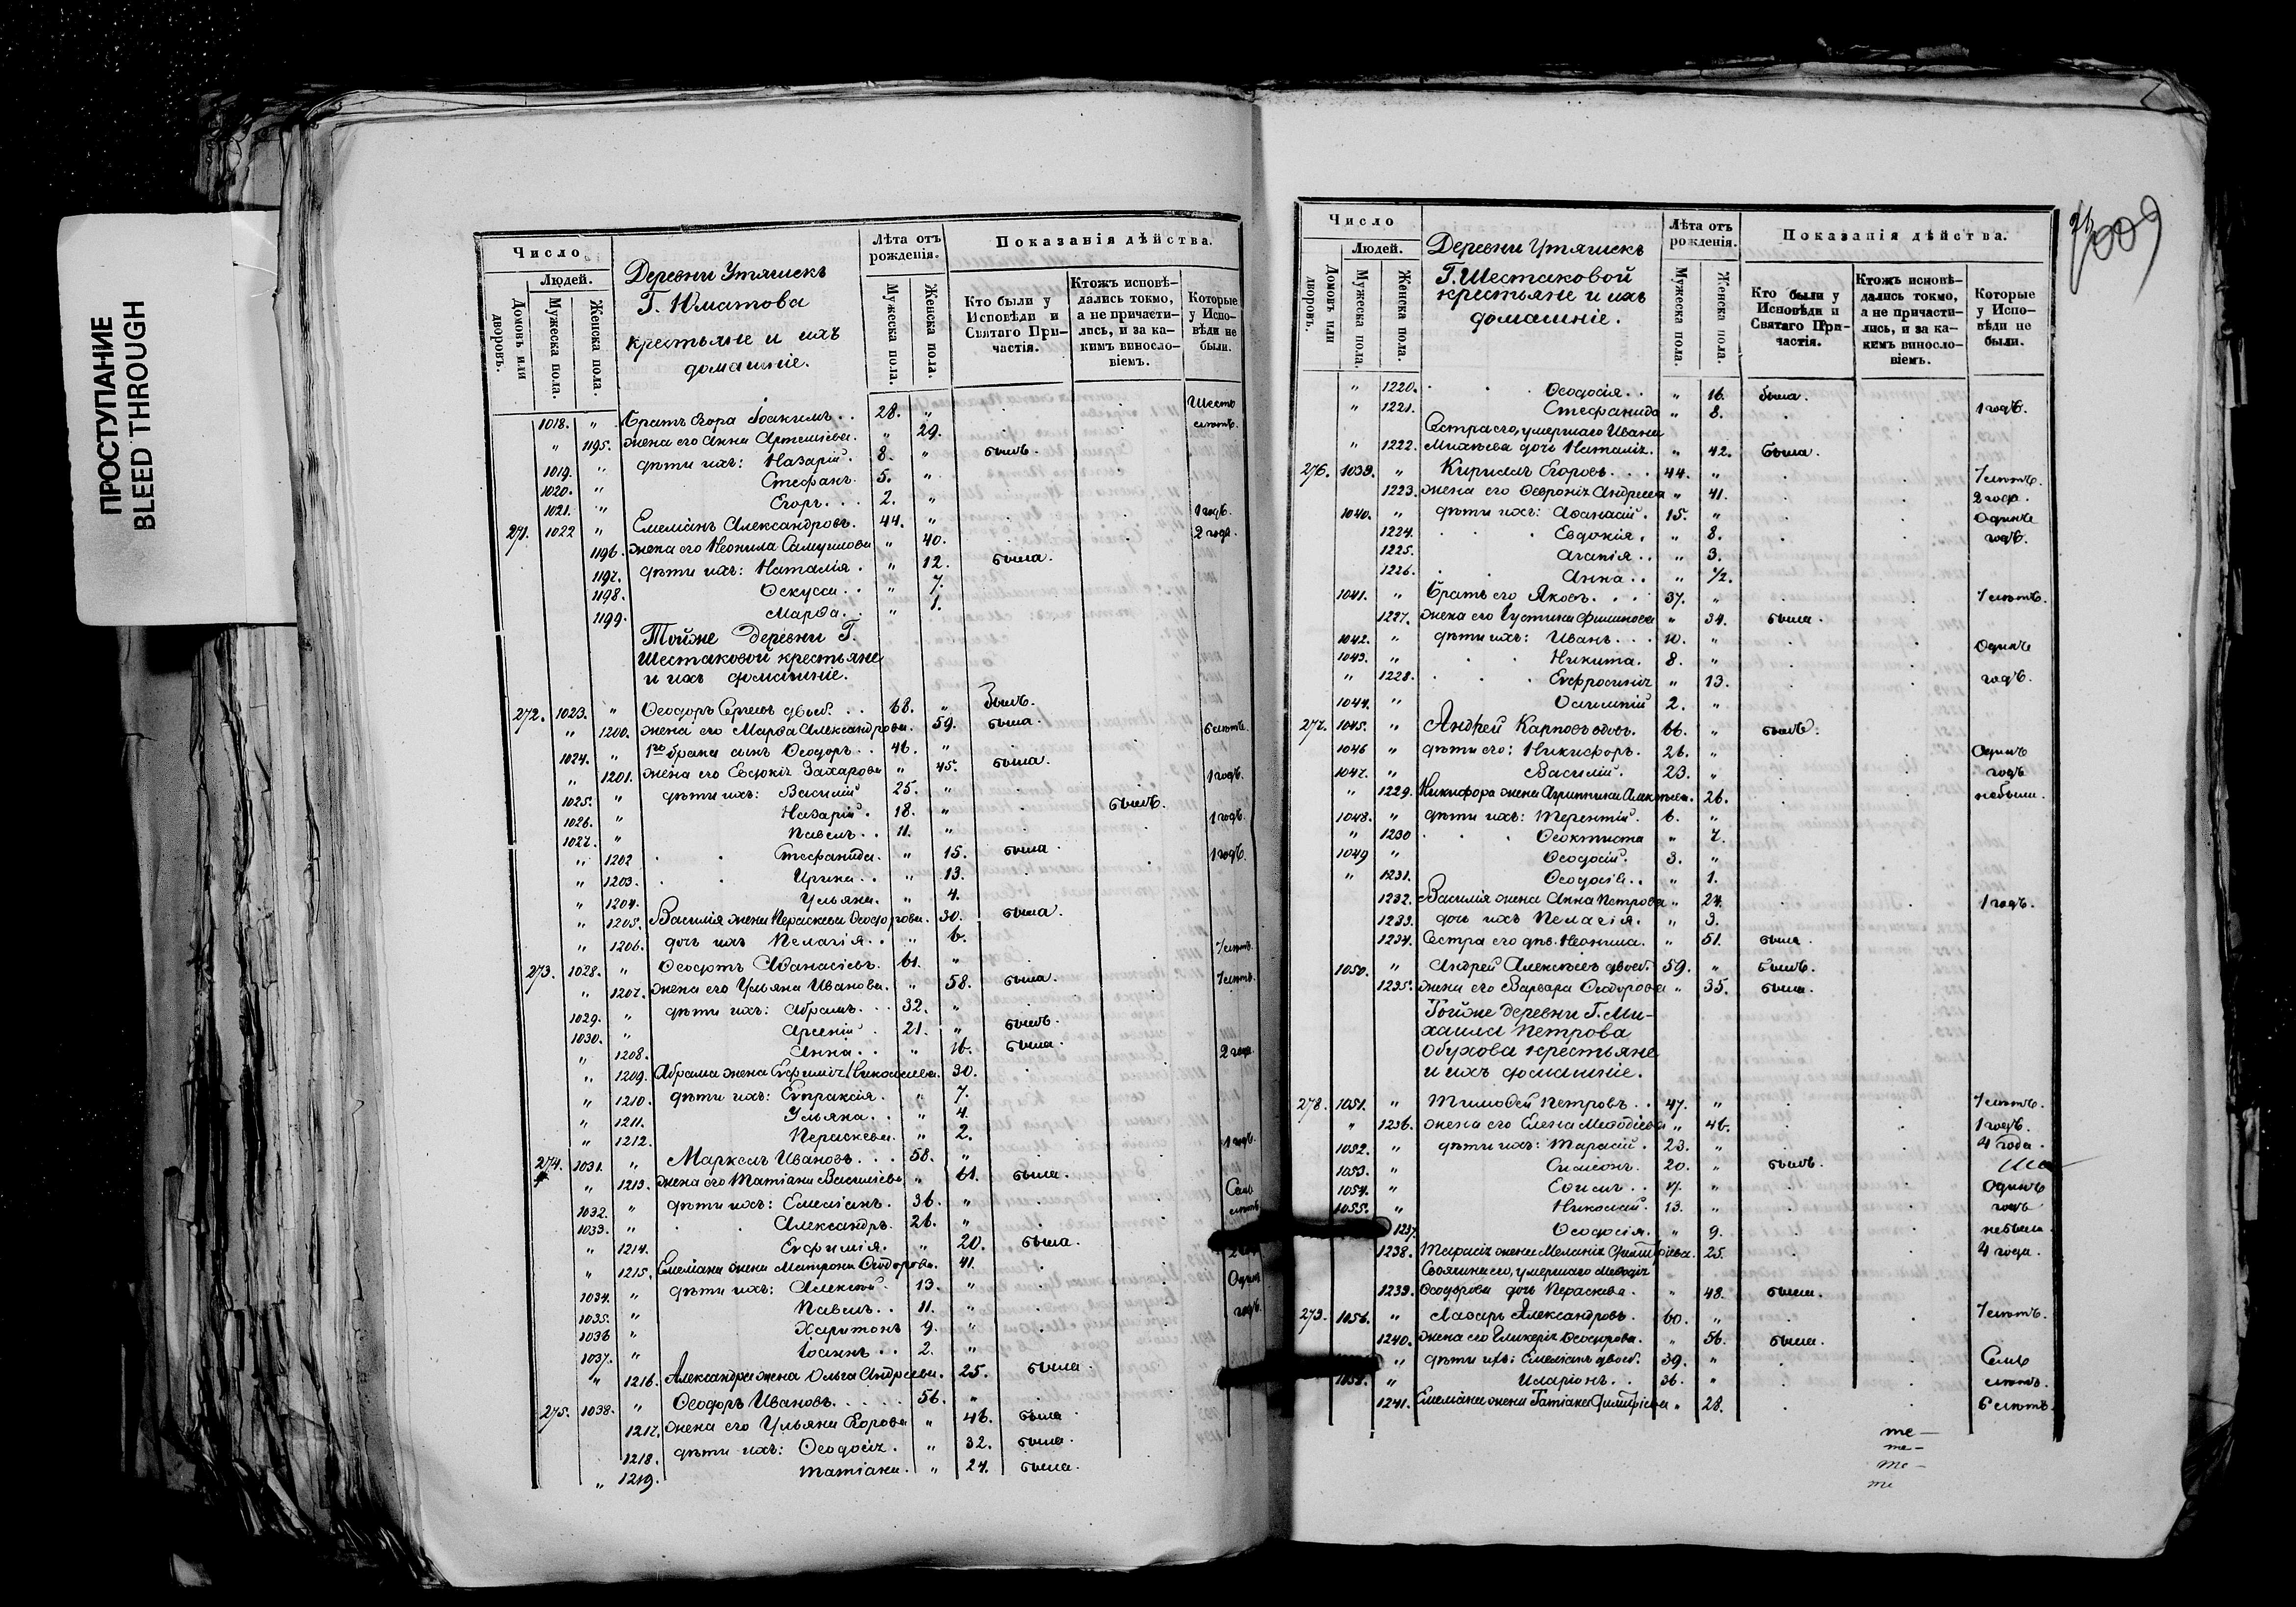 ПРОСТУПАНИЕ
BLEED THROUGH
Число
Людей.
Домовъ или дворовъ.
Мужеска пола.
Женска пола.
Деревни Утяшекъ
Г. Юматова
крестьяне и ихъ
домашніе.
Лѣта отъ рожденія.
Мужеска пола.
Женска пола.
Показанія дѣйства.
Кто были у Исповѣди и Святаго Причастія.
Ктожъ исповѣдались токмо, а не причастились, и за какимъ винословіемъ.
Которые у Исповѣди не были.
1018. " Братъ Егора Іоакимъ . . 28. " Шесть
" 1195. жена его Анна Артеміева. " 29. лѣтъ.
1019. " дѣти ихъ: Назарій. 8. " былъ.
1020. " Стефанъ. 5. "
1021. " Егоръ . . . 2. "
271. 1022 " Емеліанъ Александровъ. 44. " 1 годъ.
1196. жена его Неонила Самуилова " 40. 2 года.
1197. дѣти ихъ: Наталія. " 12. была.
1198. . . " 7.
1199. Марѳа . . " 1.
Тойже деревни Г.
Шестаковой крестьяне
и ихъ домашніе.
272. 1023. " Ѳеодоръ Сергѣевъ двоеб. . . 68. " былъ.
" 1200. жена его Марѳа Александрова. 59. была. 6 лѣтъ.
1024. " 1го брака сынъ Ѳеодоръ . . 46. "
" 1201. жена его Евдокія Захарова " 45. была.
1025. " дѣти ихъ: Василій 25. " 1 годъ.
1026. " Назарій. 18. " былъ.
1027. " Павелъ . . 11. " 1 годъ.
" 1202 Стефанида. " 15. была.
" 1203. Ирина . . " 13. 1 годъ.
" 1204. Ульяна. " 4.
" 1205. Василія жена Параскева Ѳеодорова. 30. была.
" 1206. дочь ихъ Пелагія . . " 6.
273. 1028. " Аѳанасіевъ. 61. " 7 лѣтъ.
" 1207. жена его Ульяна Иванова. " 58. была. 7 лѣтъ.
1029. " дѣти ихъ: Абрамъ . . . 32. "
1030. " Арсеній . 21. " былъ.
" 1208. Анна . . " 16. была.
" 1209. Абрама жена Евфимія Николаева. 30. 2 года.
" 1210. дѣти ихъ: Евпраксія. " 7.
" 1211. Ульяна . . " 4.
" 1212. Параскева. " 2.
274. 1031. " Маркелъ Ивановъ . . . 58. " 1 годъ.
" 1213. жена его Татіана Василіева " 61. была.
1032. " дѣти ихъ: Емеліанъ. 36. " Семь
1033. " Александръ. 26. " лѣтъ
" 1214. Евфимія. " 20. была.
" 1215. Емеліана жена Матрона Ѳеодорова. 41.
1034. " дѣти ихъ: Алексѣй. 13. " Одинъ
1035. " Павелъ . . 11. " годъ.
1036 " Харитонъ 9. "
1037. " Іоаннъ . . 2. "
" 1216. Александра жена Ольга Андреева. 25. была.
275. 1038. " Ѳеодоръ Ивановъ . . . . . 56. "
1217. жена его Ульяна " 46. была.
1218. дѣти ихъ: Ѳеодосія. " 32. была.
" 1219. Татіана. " 24. была.
Число
Людей.
Домовъ или дворовъ.
Мужеска пола.
Женска пола.
Деревни Утяшекъ
Г. Шестаковой
крестьяне и ихъ
домашніе.
Лѣта отъ рожденія.
Мужеска пола.
Женска пола.
Показанія дѣйства.
Кто были у Исповѣди и Святаго Причастія.
Ктожъ исповѣдались токмо, а не причастились, и за какимъ винословіемъ.
Которые у Исповѣди не были.
009
" 1220. Ѳеодосія . . " 16. была.
" 1221. Стефанида " 8. 1 годъ.
Сестра его, умершаго Ивана
" 1222. Михѣева дочь Наталія. " 42. была.
276. 1039. " Кириллъ Егоровъ . . . . 44. " 7 лѣтъ.
1223. жена его Андреева " 41. 2 года.
1040. " дѣти ихъ: Аѳанасій. 15. " Одинъ
1224. Евдокія. " 8. годъ.
1225. Агапія . . " 3.
1226. Анна . . " ½.
1041. " Братъ его Яковъ . . . 37. " 7 лѣтъ.
1227. жена его Густина Филипова " 34. была.
1042. " дѣти ихъ: Иванъ . . . 10. " Одинъ
1043. " Никита. 8. "
" 1228. Евфросинія " 13. годъ.
1044. " Василій 2. "
277. 1045. " Андрей Карповъ вдовъ. 66. " былъ.
1046 " дѣти его: Никифоръ. 26. " Одинъ
1047. " Василій. 23. " годъ
" 1229. Никифора жена Агрипина Алексѣева. 26. небыли.
1048. " дѣти ихъ: Терентій. 6. "
" 1230 Ѳеоктиста " 7.
1049 " Ѳеодосій. 3. "
" 1231. Ѳеодосія . . " 1.
1232. Василія жена Анна Петрова " 24. 1 годъ.
1233. дочь ихъ Пелагія. " 3.
1234. Сестра его дѣв. Неонила. " 51. была.
1050. " Андрей Алексѣевъ двоеб. 59. " былъ.
1235. жена его Варвара Ѳеодорова " 35. была.
Тойже деревни Г. Ми-
хаила Петрова
Обухова крестьяне
и ихъ домашніе.
278. 1051. " Тимоѳей Петровъ . . 47. " 7 лѣтъ.
" 1236. жена его Елена Меѳодіева " 46. 1 годъ.
1052. " дѣти ихъ: Тарасій. 23. " 4 года.
1053. " Симеонъ. 20. " былъ.
1054. " Ефимъ . . 17. " Одинъ
1055. " Николай. 13. " годъ
1237. Ѳеодосія. " 9. небыли.
1238. Тарасія жена Меланія Димитріева. 25. 4 года.
Своячина его, умершаго Меѳодія
1239. Ѳеодорова дочь Параскева. " 48. была.
279. 1056. " Лазарь Александровъ. 60. " 7 лѣтъ.
1240. жена его Гликерія Ѳеодорова. " 56. была.
" дѣти ихъ: Емеліанъ двоеб. 39. " Семь
1058. " Иларіонъ . . 36. " лѣтъ.
1241. Емеліана жена Татіана Димитріева " 28. 6 лѣтъ.
те —
те —
те —
те